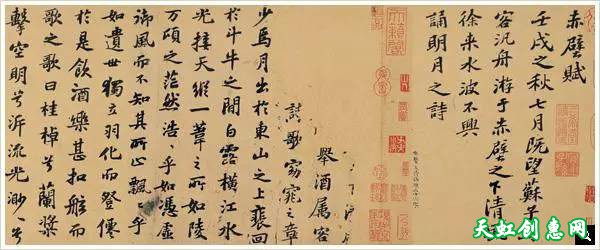 赤壁賦
壬戌之秋七月既望蘇子
客汎舟游于赤壁之下清
徐来水波不興
誦明月之詩
舉酒属客
歌窈窕之章
少焉月出於東山之上裵回
於斗牛之間白露横江水
光接天縱一葦之所如陵
万頃之茫然浩々乎如憑虚
御風而不知其所止飄々乎
如遺世獨立羽化而登僊
於是飲酒樂甚扣舷而
歌之歌曰桂棹兮蘭槳
擊空明兮泝流光渺々兮
天虹创惠网